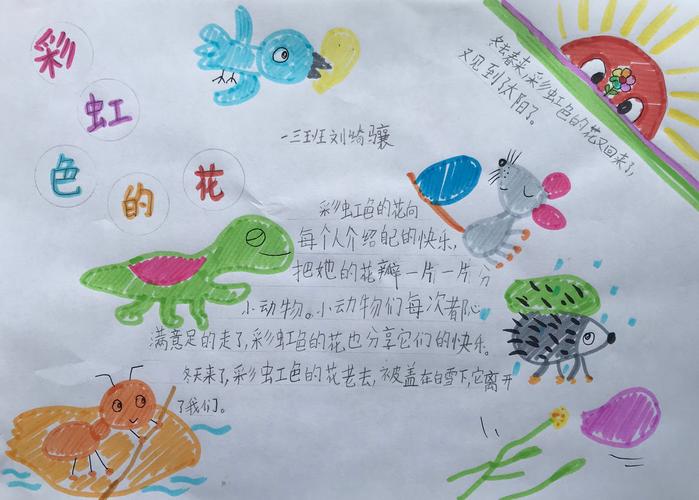 彩虹色的花
一三班刘崎骧
冬去春来,彩虹色的花又回来了,
又见到太阳了。
彩虹色的花向
每个人介绍自己的快乐,
把她的花瓣一片一片分
小动物。小动物们每次都心
满意足的走了,彩虹色的花也分享它们的快乐。
冬天来了,彩虹色的花老去,被盖在白雪下,它离开
了我们。